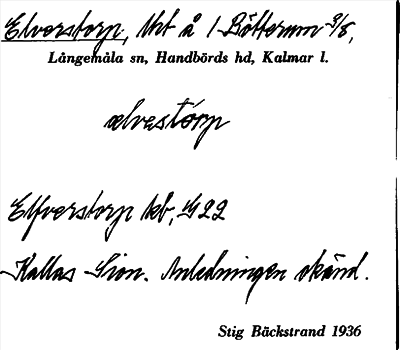 Elverstorp, tht å 1 Bötterum 3/8,
Långemåla sn, Handbörds hd, Kalmar l.
ælvestorp
Elfverstorp kb, G22
Kallas Sion. Anledningen okänd.
Stig Bäckstrand 1936